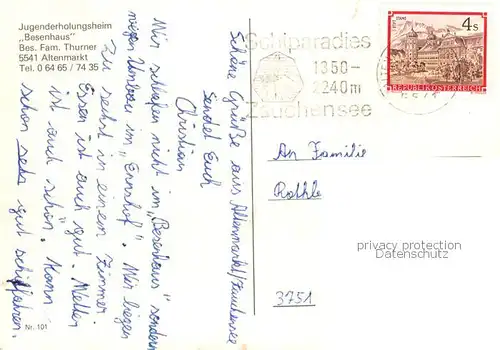 Jugenderholungsheim
„Besenhaus"
Bes. Fam. Thurner
5541 Altenmarkt
Tel. 0 64 65 / 74 35
Schiparadies
1350-
2240m
Zauchensee
4s
REPUBLIK ÖSTERREICH
Schöne Grüße aus Altenmarkt/Zauchensee
sendet Euch
Christian
Wir schlafen nicht im „Besenhaus" sondern
wegen Umbau im „Ennshof". Wir liegen
zu sechst in einem Zimmer
Essen ist auch gut. Wetter
ist auch schön. Kann
schon sehr gut schifahren.
An Familie
3751
privacy protection
Datenschutz
Nr. 101